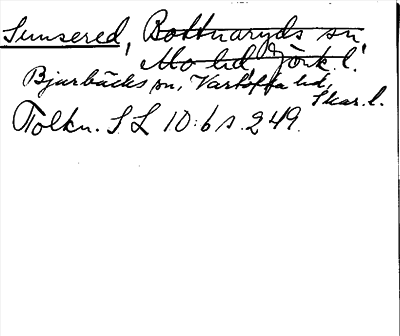 Sunsered, Bottnaryds sn
Mo hd, Jönk. l.
Bjurbäcks sn, Vartofta hd,
Skar. l.
Tolkn. SL 10:6 s. 249.